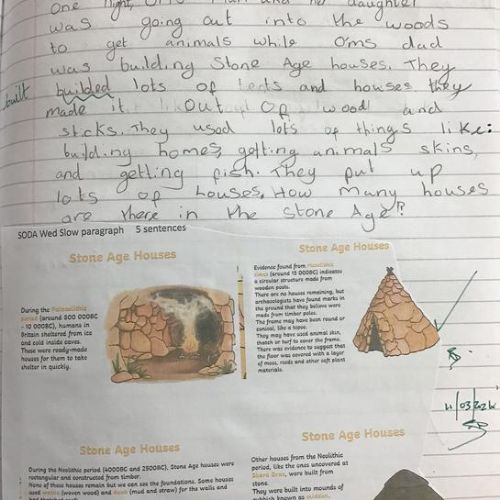 one night, Om's Mum and her daughter
was going out into the woods
to get animals while Om's dad
was building Stone Age houses. They
built
builded lots of tents and houses they
made it out of wood and
sticks. They used lots of things like:
building homes, getting animals skins,
and getting fish. They put up
lots of houses. How many houses
are there in the Stone Age?
SODA Wed Slow paragraph 5 sentences
Stone Age Houses
During the Palaeolithic
period (around 800 000BC
- 10 000BC), humans in
Britain sheltered from ice
and cold inside caves.
These were ready-made
houses for them to take
shelter in quickly.
Stone Age Houses
Evidence found from Mesolithic
times (around 15 000BC) indicates
a circular structure made from
wooden posts.
There are no houses remaining, but
archaeologists have found marks in
the ground that they believe were
made from timber poles.
The frame may have been round or
conical, like a tepee.
They may have used animal skin,
thatch or turf to cover the frame.
There was evidence to suggest that
the floor was covered with a layer
of moss, reeds and other soft plant
materials.
Stone Age Houses
During the Neolithic period (4000BC and 2500BC), Stone Age houses were
rectangular and constructed from timber.
None of these houses remain but we can see the foundations. Some houses
used wattle (woven wood) and daub (mud and straw) for the walls and
had thatched roofs.
Stone Age Houses
Other houses from the Neolithic
period, like the ones uncovered at
Skara Brae, were built from
stone.
They were built into mounds of
rubbish known as midden,